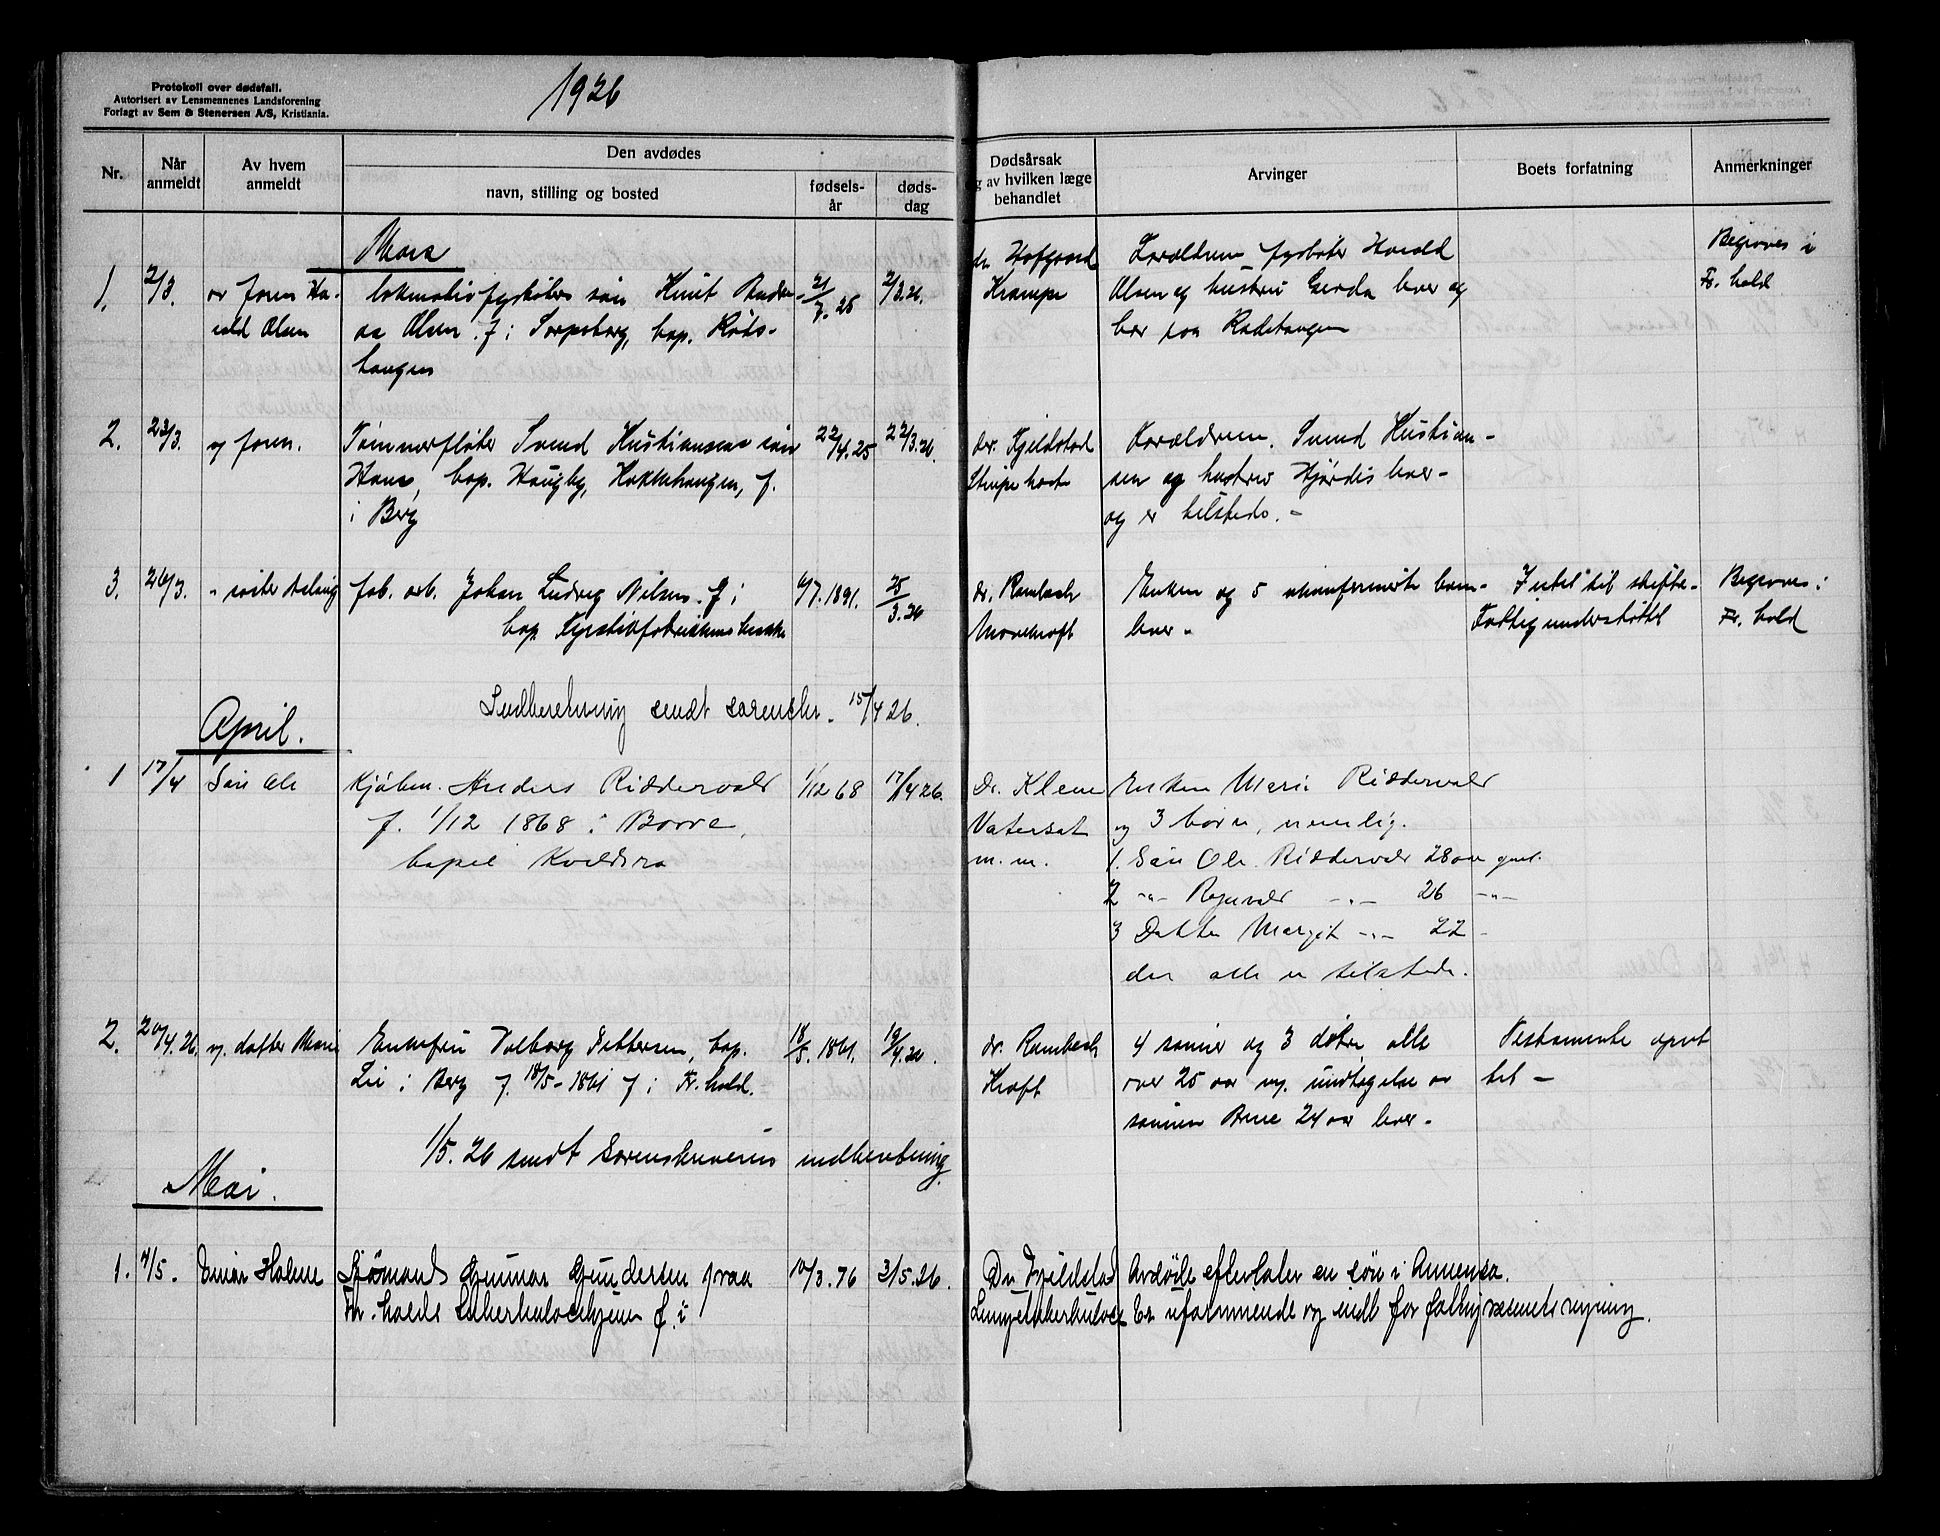 Protokoll over dødsfall.
Autorisert av Lensmennenes Landsforening
Forlagt av Sem & Stenersen A/S, Kristiania.
1926
Nr.
Når anmeldt
Av hvem anmeldt
Den avdødes
navn, stilling og bosted
fødsels-år
døds-dag
Dødsårsak
og av hvilken læge
behandlet
Arvinger
Boets forfatning
Anmerkninger
Mars
1. 2/3. av faren Ha-
rald Olsen
lokomotivfyrbøters søn Knut
Olsen f. i Sarpsborg, bop. Røds-
haugen
21/7. 25
2/3.26.
dr. Hofgaard
Krampe
Forældrene fyrbøter Harald
Olsen og hustru Gerda lever og
bor paa
Begraves i
Fr. hald
2. 23/3. av faren.
Tømmerfløter Svend Kristiansens søn
Hans, bop. Haugby, f.
i Berg
22/4.25
22/3.26.
dr. Kjeldstad
Strupehoste
Forældrene, Svend Kristian-
sen og hustru Hjørdis lever -
og er tilstede. -
3. 26/3.
fab. arb. Johan Ludvig Nilsen. f. i
bop. Fyrstikfabrikkens
6/7. 1891.
25/3.26
dr. Rambech
Enken og 5 ukonfirmerte barn
lever.
Intet til skifte.
Fattigunderstøttet
Begraves i
Fr. hald
Indberetning sendt sorenskr. 15/4 26.
April.
1 17/4 Søn Ole
Kjøbm. Anders Riddervold
f. 1/12 1868 i Borre,
bopel
1/12 68
17/4 26.
Dr. Klem
Vatersot
m. m.
Enken Marie Riddervold
og 3 børn, nemlig.
1. Søn Ole Riddervold 28 aar gml.
2 -"- Ragnvald -"- 26 -"-
3 Datter Margit -"- 22 -
der alle er tilstede.
2. 20/4.26. av datter Marie
Enkefru Valborg Pettersen, bop.
Lie i Berg f. 18/5 - 1861 f. i Fr. hald.
18/5. 1861.
19/4.26.
dr. Rambech
Kræft
4 sønner og 3 døtre alle
over 25 aar m. undtagelse av
sønnen 24 aar lever.
Testamente oprет
tet -
1/5. 26 sendt Sorenskriveren indberetning.
Mai.
1. 4/5. Einar Holme
Sjømand Gunnar Gundersen paa
Fr. halds Tuberkulosehjem f. i
10/3. 76
3/5.26.
Dr Kjeldstad
Lungetuberkulose
Avdøde efterlater en søn i Amerika.
Er uformuende og indl. for fattigvæsenets regning.